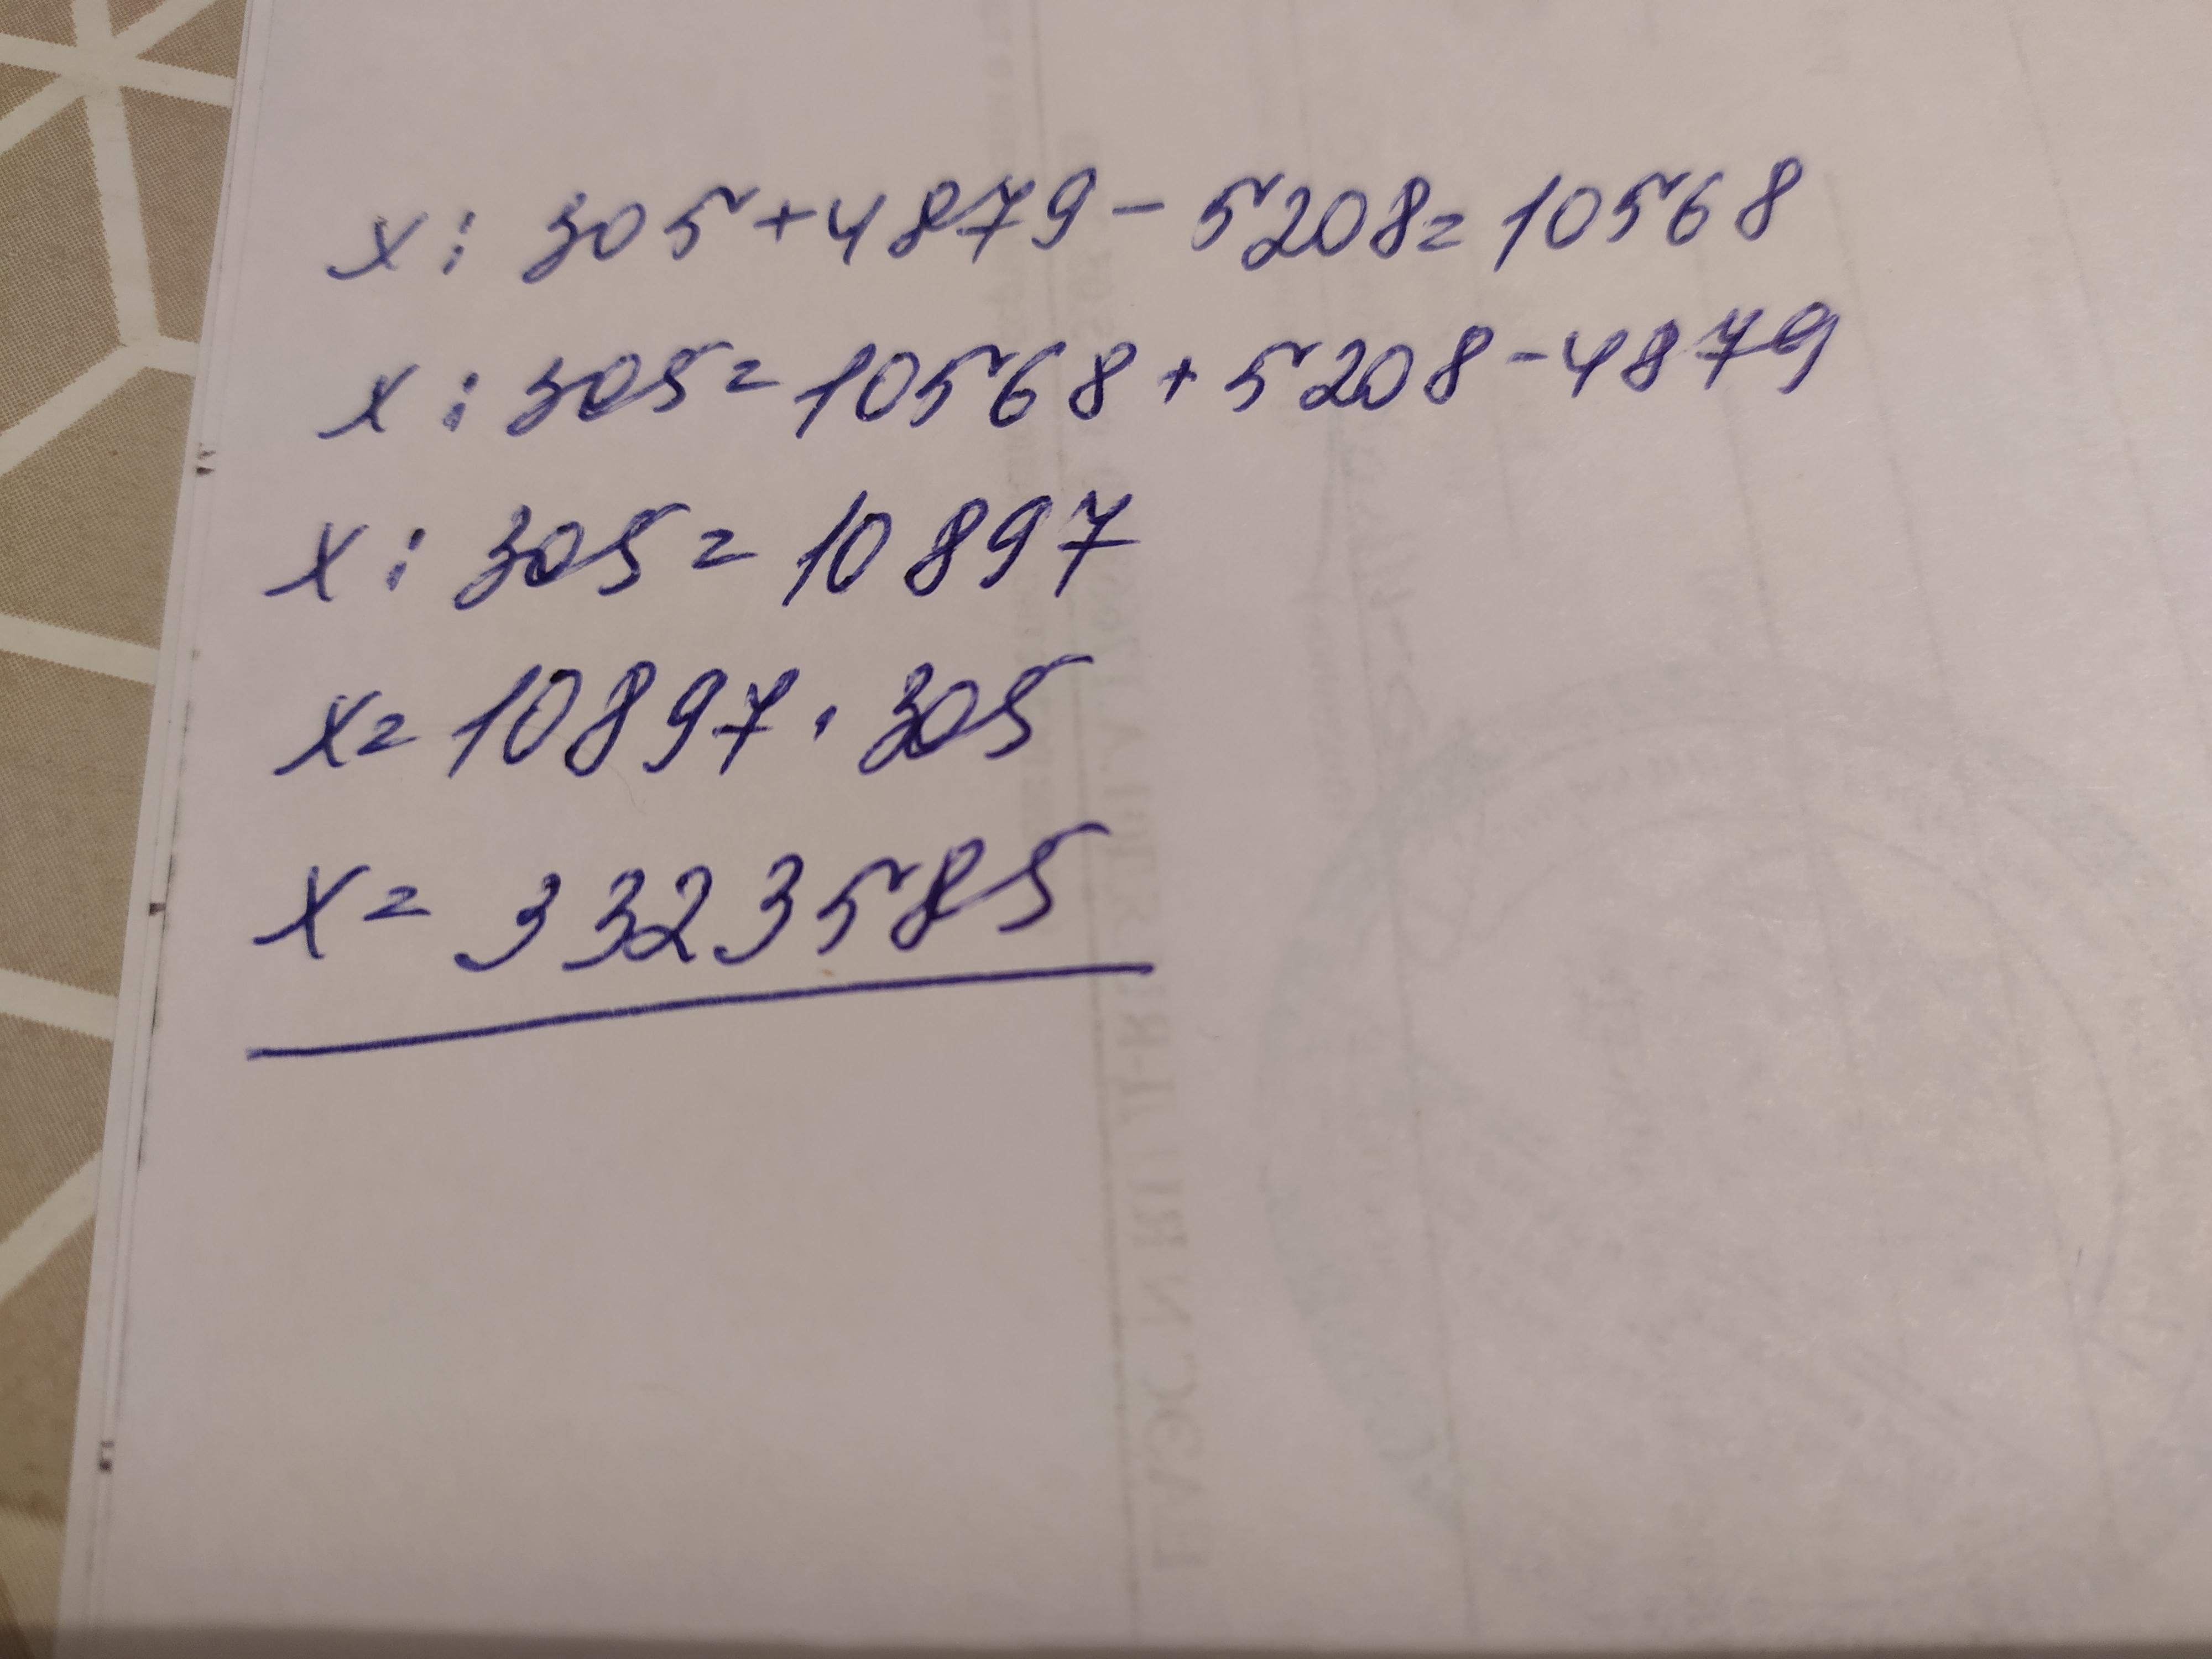 x : 305 + 4879 - 5208 = 10568
x : 305 = 10568 + 5208 - 4879
x : 305 = 10897
x = 10897 · 305
x = 3323585